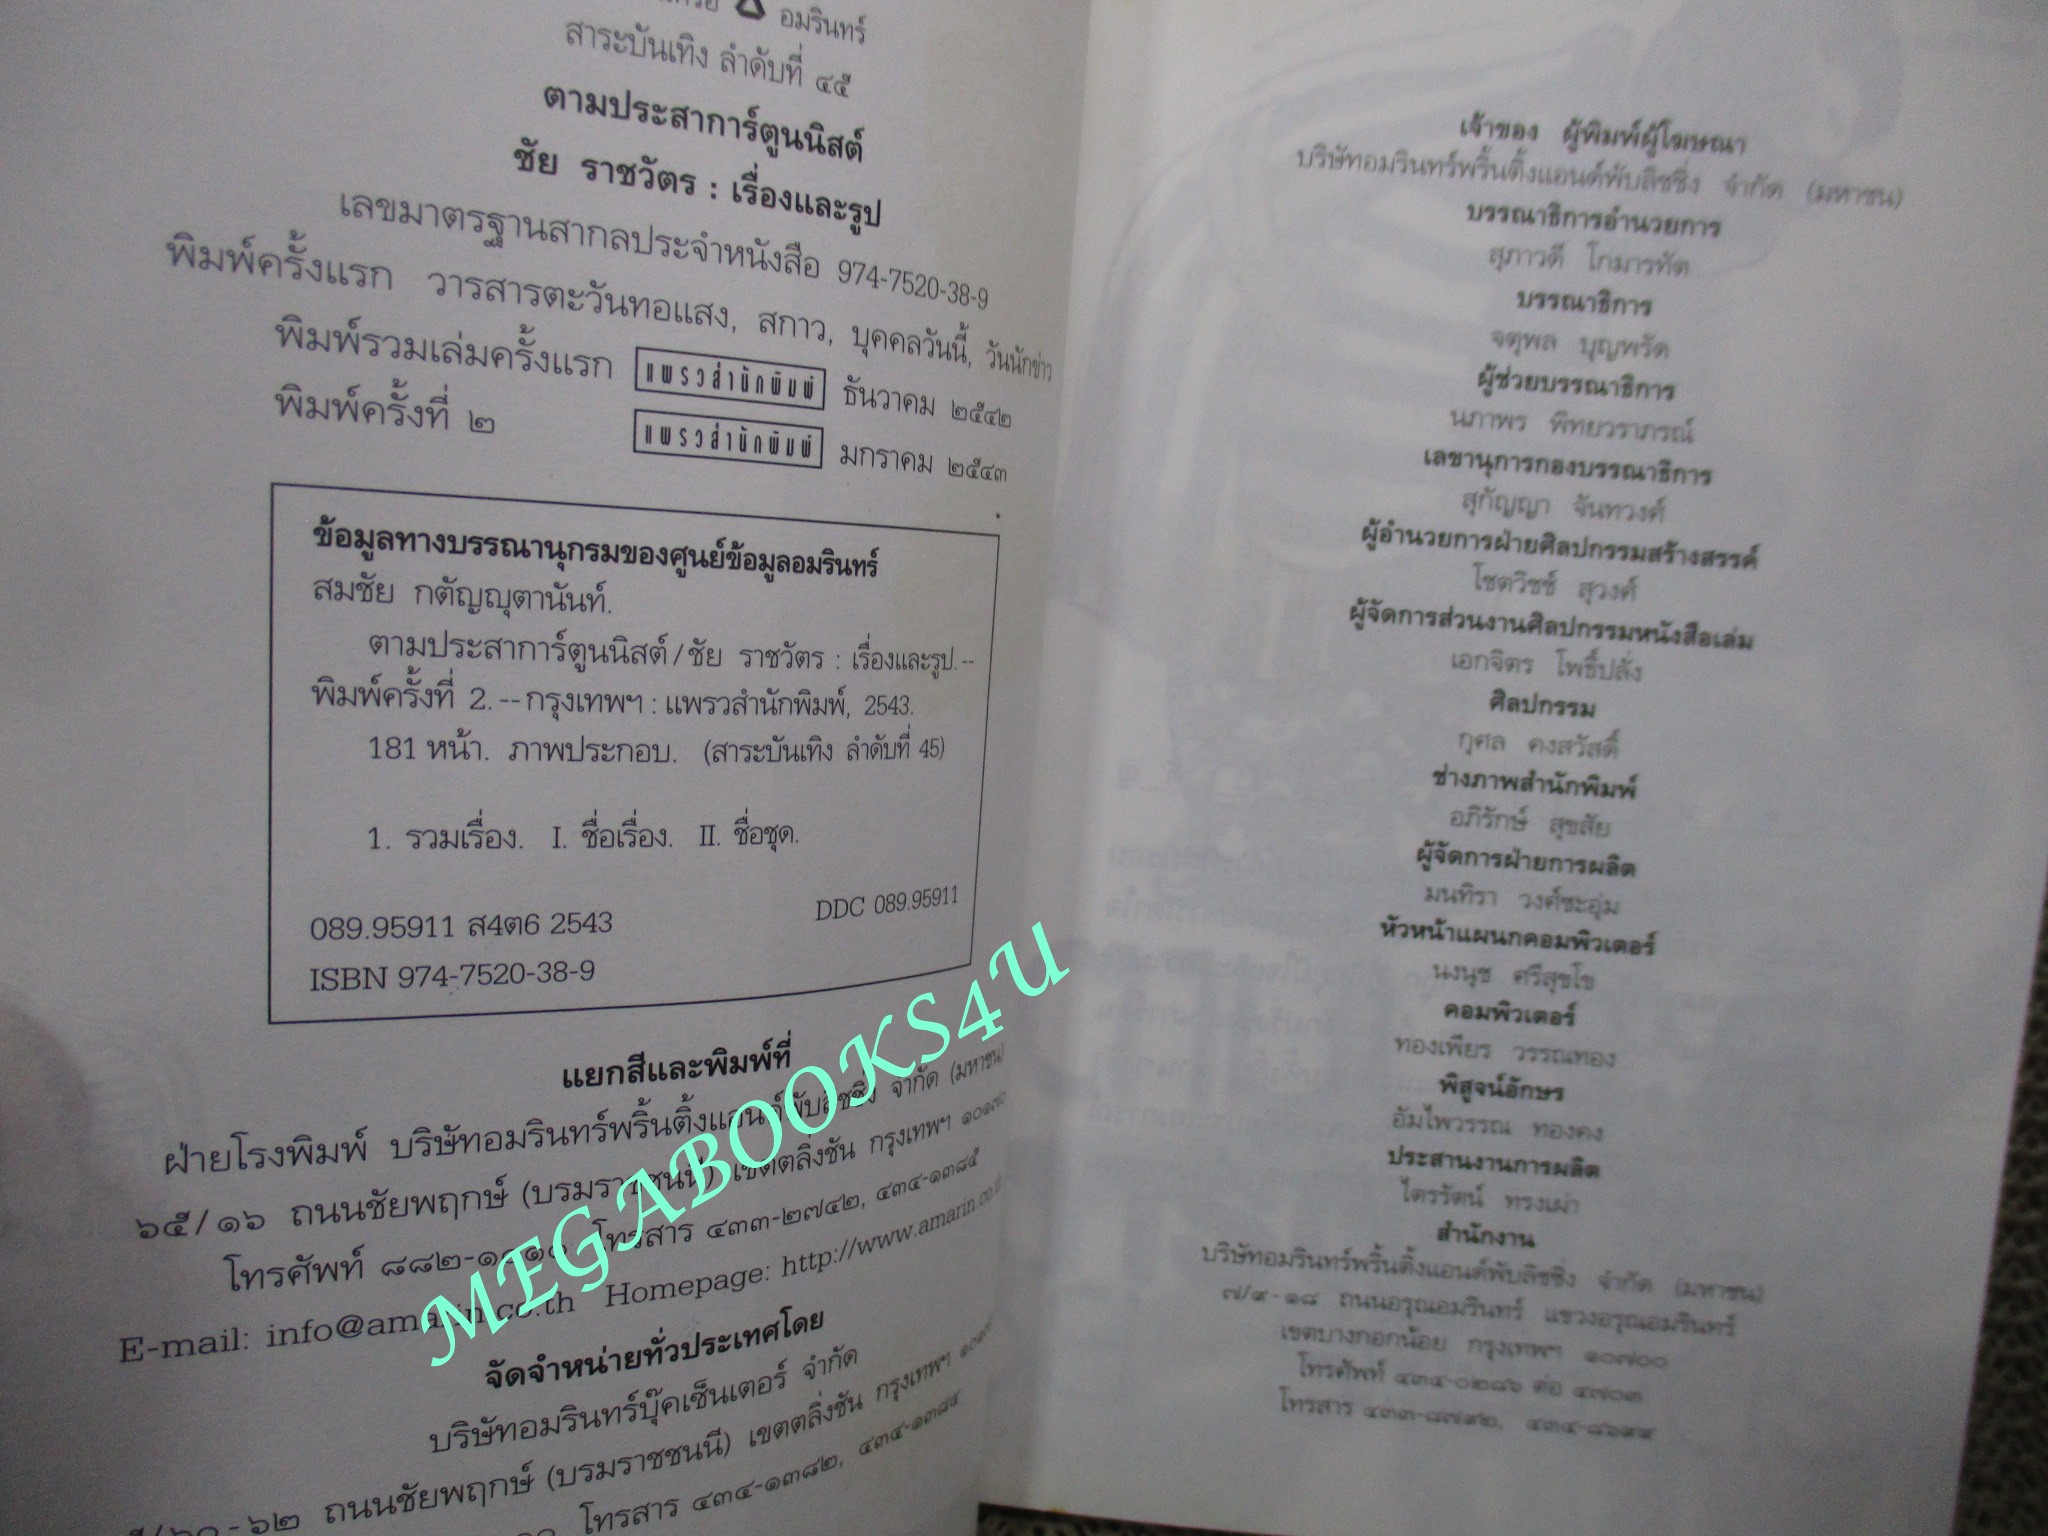 อมรินทร์
สาระบันเทิง ลำดับที่ ๔๕
ตามประสาการ์ตูนนิสต์
ชัย ราชวัตร : เรื่องและรูป
เลขมาตรฐานสากลประจำหนังสือ 974-7520-38-9
พิมพ์ครั้งแรก วารสารตะวันทอแสง, สกาว, บุคคลวันนี้, วันนักข่าว
พิมพ์รวมเล่มครั้งแรก แพรวสำนักพิมพ์ ธันวาคม ๒๕๔๒
พิมพ์ครั้งที่ ๒ แพรวสำนักพิมพ์ มกราคม ๒๕๔๓
ข้อมูลทางบรรณานุกรมของศูนย์ข้อมูลอมรินทร์
สมชัย กตัญญุตานันท์.
ตามประสาการ์ตูนนิสต์/ชัย ราชวัตร : เรื่องและรูป.--
พิมพ์ครั้งที่ 2.--กรุงเทพฯ : แพรวสำนักพิมพ์, 2543.
181 หน้า. ภาพประกอบ. (สาระบันเทิง ลำดับที่ 45)
1. รวมเรื่อง. I. ชื่อเรื่อง. II. ชื่อชุด.
089.95911 ส4ต6 2543 DDC 089.95911
ISBN 974-7520-38-9
แยกสีและพิมพ์ที่
ฝ่ายโรงพิมพ์ บริษัทอมรินทร์พริ้นติ้งแอนด์พับลิชชิ่ง จำกัด (มหาชน)
๖๕/๑๖ ถนนชัยพฤกษ์ (บรมราชชนนี) เขตตลิ่งชัน กรุงเทพฯ ๑๐๑๗๐
โทรศัพท์ โทรสาร ๔๓๓-๒๗๔๒, ๔๓๔-๑๓๘๕
E-mail: info@amarin.co.th Homepage: http://www.amarin.co.th
จัดจำหน่ายทั่วประเทศโดย
บริษัทอมรินทร์บุ๊คเซ็นเตอร์ จำกัด
ถนนชัยพฤกษ์ (บรมราชชนนี) เขตตลิ่งชัน กรุงเทพฯ
โทรสาร ๔๓๔-๑๓๘๒, ๔๓๔-๑๓๘๔
MEGABOOKS4U
เจ้าของ ผู้พิมพ์ผู้โฆษณา
บริษัทอมรินทร์พริ้นติ้งแอนด์พับลิชชิ่ง จำกัด (มหาชน)
บรรณาธิการอำนวยการ
สุภาวดี โกมารทัต
บรรณาธิการ
จตุพล บุญพรัด
ผู้ช่วยบรรณาธิการ
นภาพร พิทยวราภรณ์
เลขานุการกองบรรณาธิการ
สุกัญญา จันทวงศ์
ผู้อำนวยการฝ่ายศิลปกรรมสร้างสรรค์
โชตวิชช์ สุวงศ์
ผู้จัดการส่วนงานศิลปกรรมหนังสือเล่ม
เอกจิตร โพธิ์ปลั่ง
ศิลปกรรม
กุศล คงสวัสดิ์
ช่างภาพสำนักพิมพ์
อภิรักษ์ สุขสัย
ผู้จัดการฝ่ายการผลิต
มนทิรา วงศ์ชะอุ่ม
หัวหน้าแผนกคอมพิวเตอร์
นงนุช ศรีสุขโข
คอมพิวเตอร์
ทองเพียร วรรณทอง
พิสูจน์อักษร
อัมไพวรรณ ทองคง
ประสานงานการผลิต
ไตรรัตน์ ทรงเผ่า
สำนักงาน
บริษัทอมรินทร์พริ้นติ้งแอนด์พับลิชชิ่ง จำกัด (มหาชน)
๗/๙-๑๘ ถนนอรุณอมรินทร์ แขวงอรุณอมรินทร์
เขตบางกอกน้อย กรุงเทพฯ ๑๐๗๐๐
โทรศัพท์ ๔๓๔-๐๒๘๖ ต่อ ๔๗๐๓
โทรสาร ๔๓๓-๘๗๙๒, ๔๓๔-๘๖๙๙